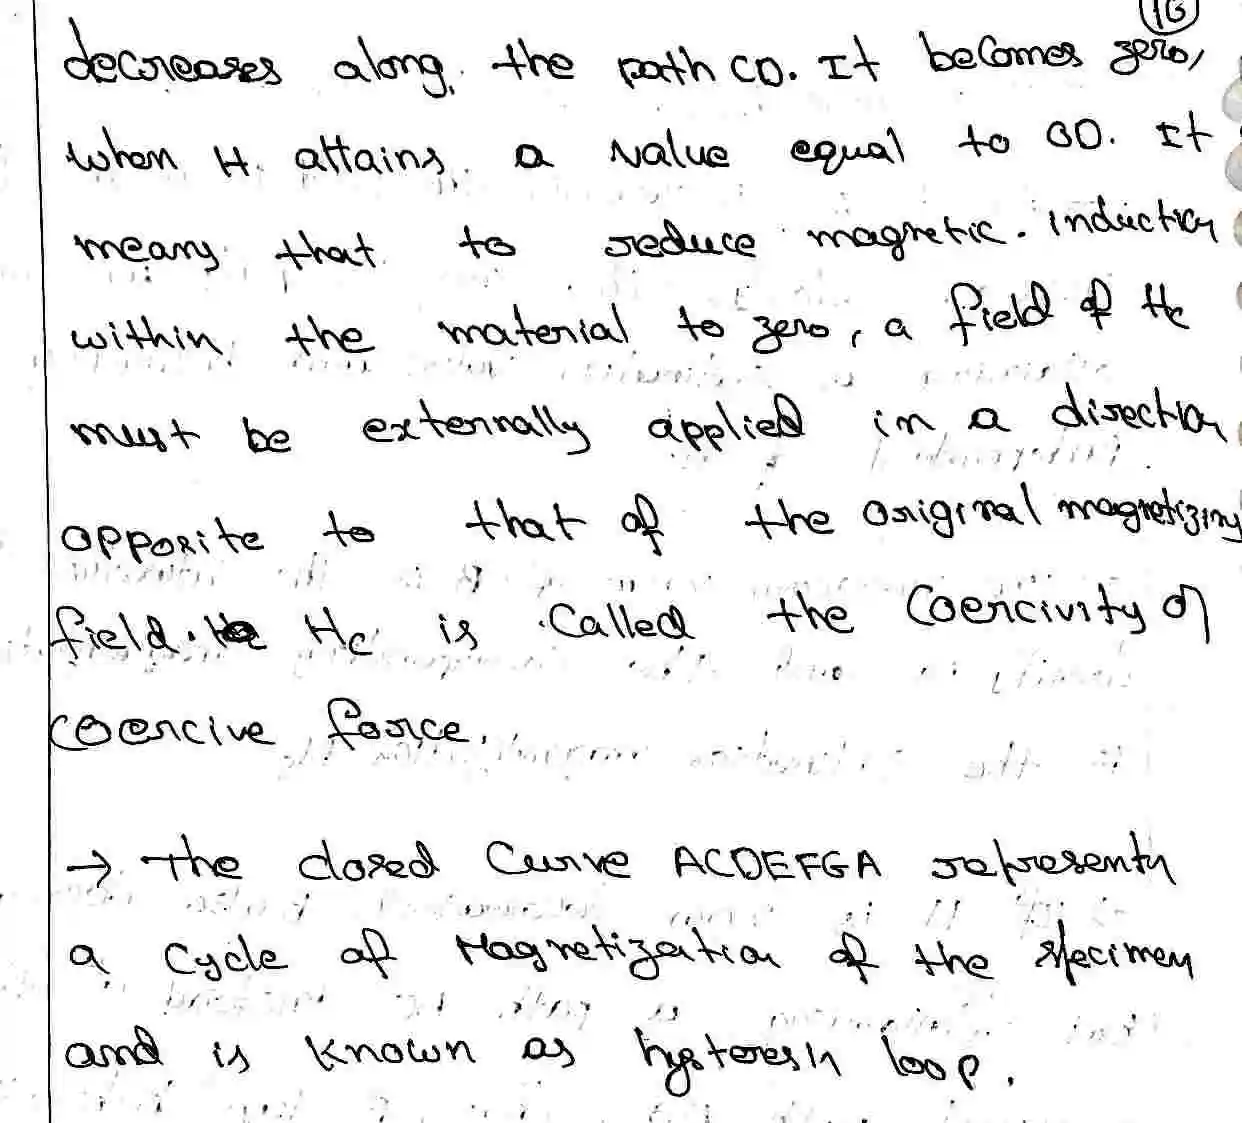 16
decreases along the path CD. It becomes zero,
when H attains a value equal to OD. It
means that to reduce magnetic induction
within the material to zero, a field of Hc
must be externally applied in a direction
opposite to that of the original magnetizing
field. Hc is called the coercivity or
coercive force.
→ The closed curve ACDEFGA represents
a cycle of Magnetization of the specimen
and is known as hysteresis loop.